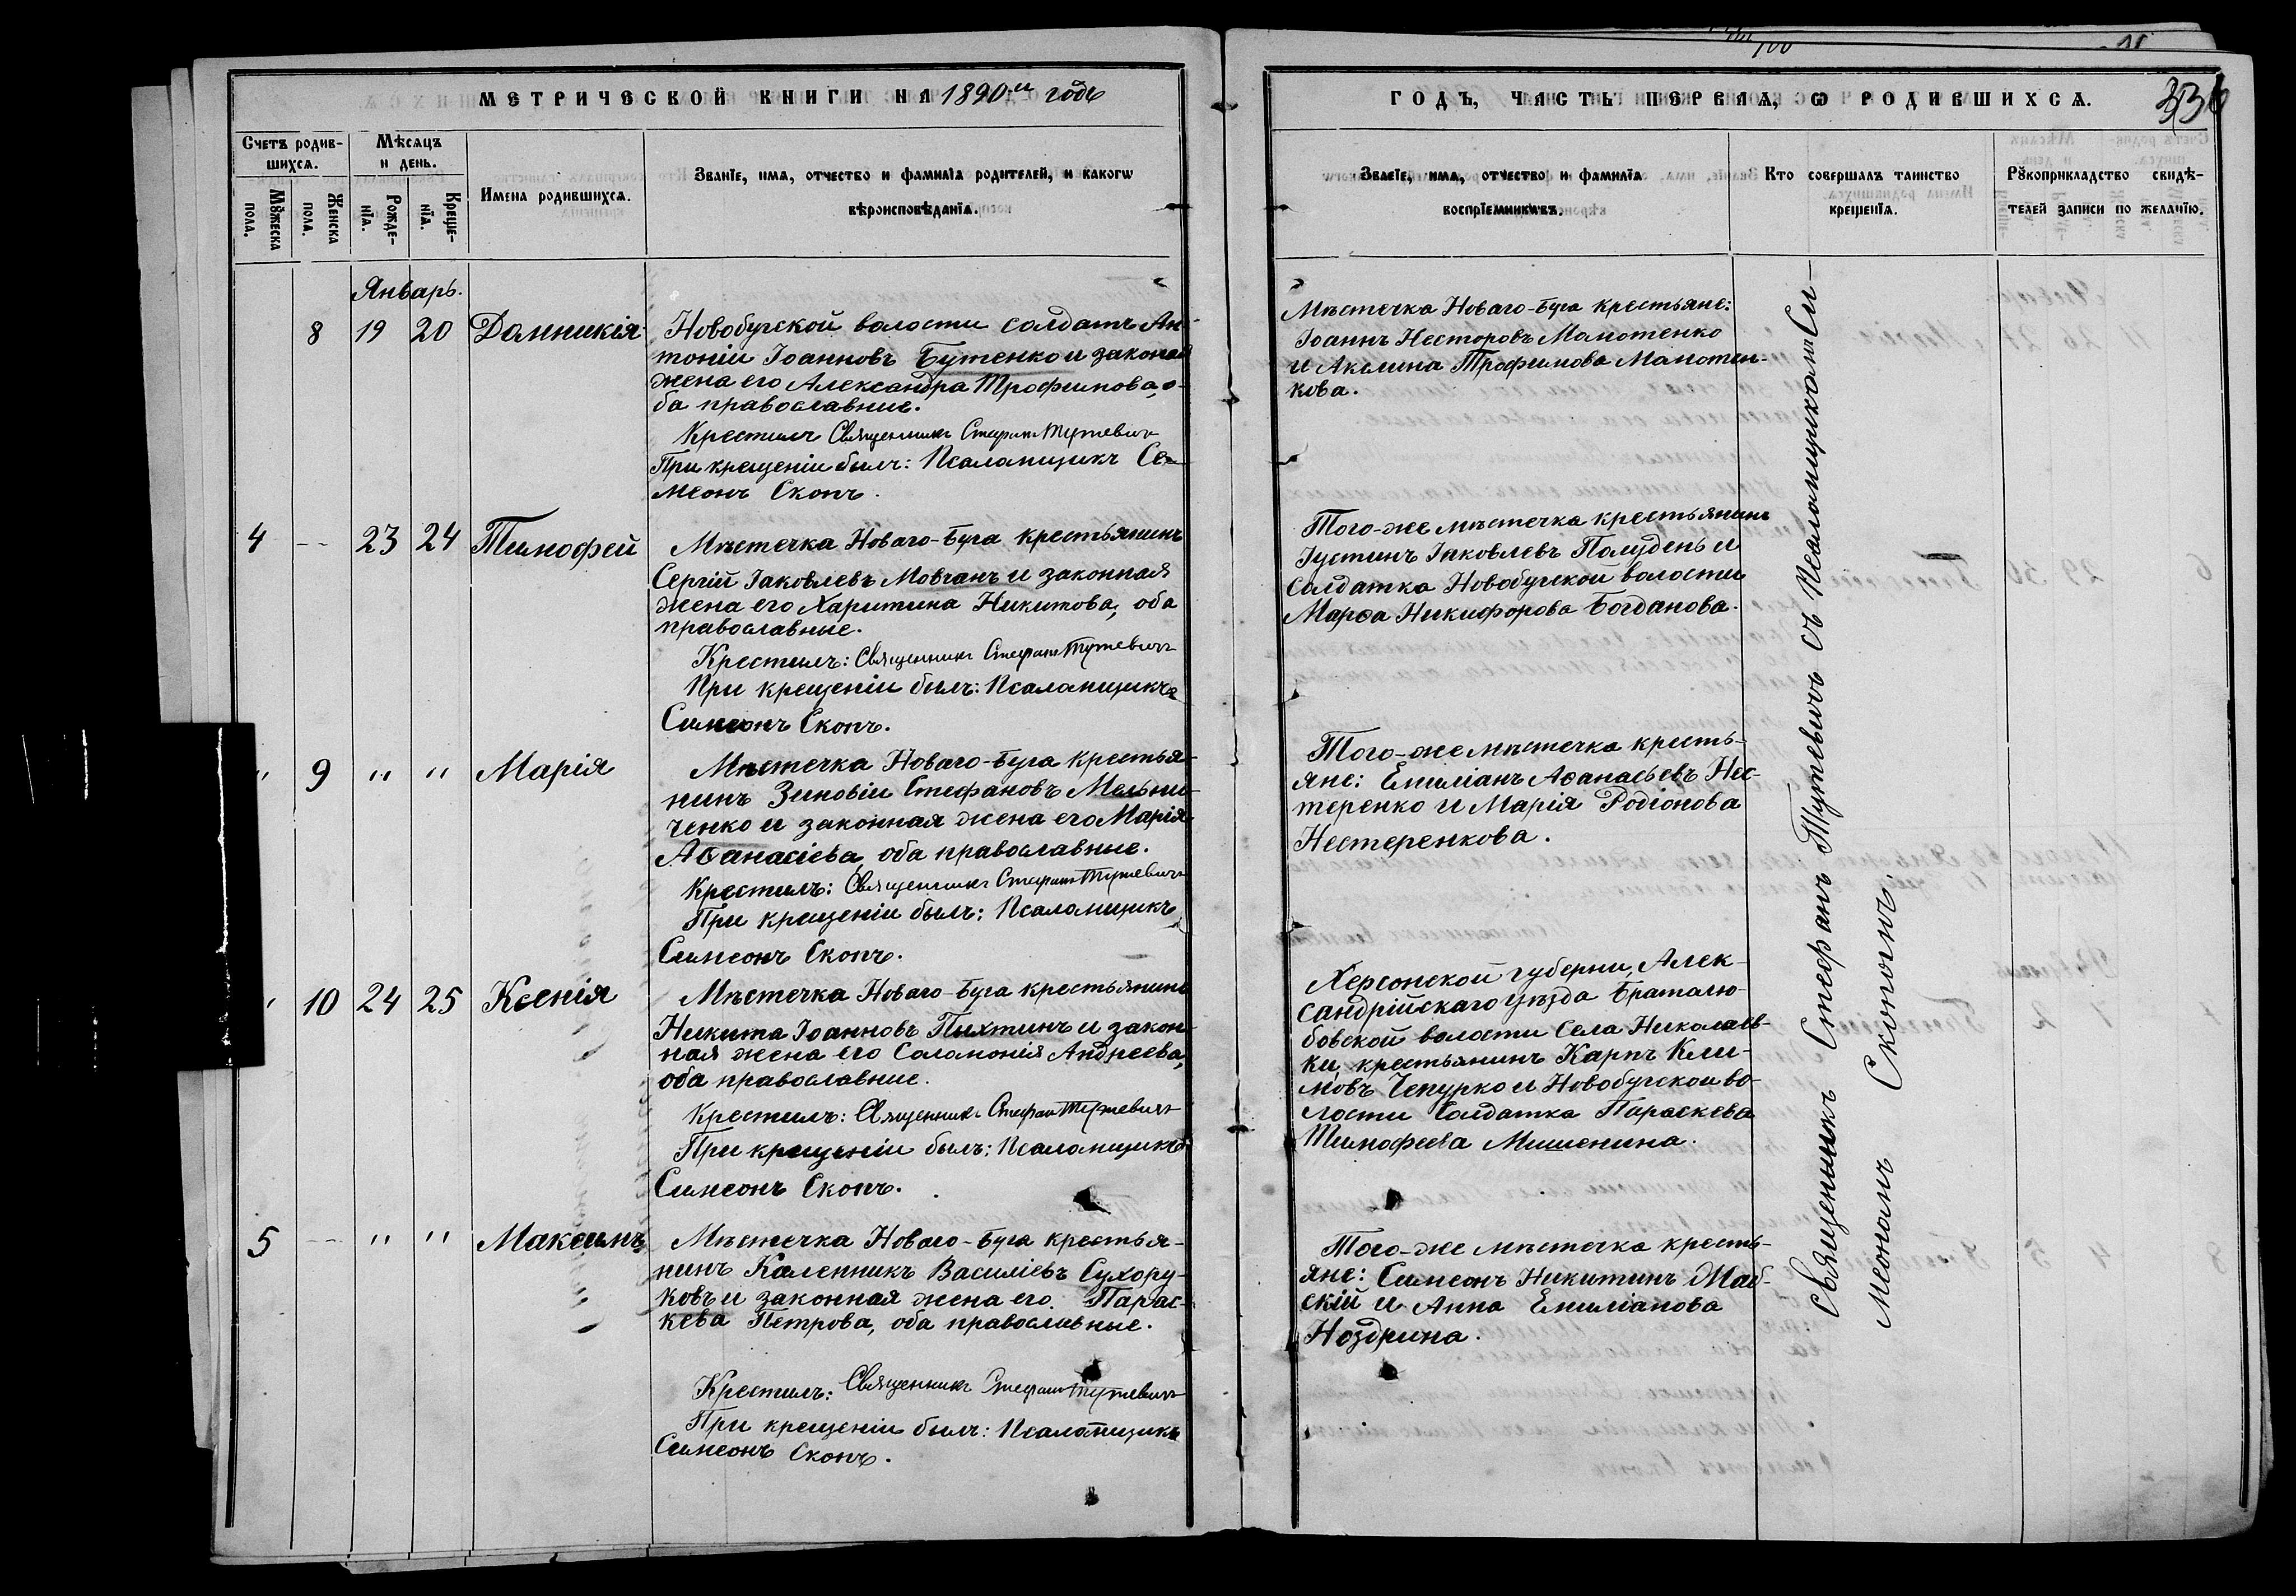 МЕТРИЧЕСКОЙ КНИГИ НА 1890.й годъ
Счетъ родив-
шихся.
Мѣсяцъ
и день.
Мужеска
пола.
Женска
пола.
Рожде-
нія.
Креще-
нія.
Имена родившихся.
Званіе, имя, отчество и фамилія родителей, и какогѡ
вѣроисповѣданія.
Январь.
8 19 20 Домникія
Новобугской волости солдатъ Ан-
тоній Іоанновъ Бутенко и законная
жена его Александра Трофимова, о-
ба православные.
Крестилъ Священникъ Стефанъ Тутевичъ
При крещеніи былъ: Псаломщикъ Се-
меонъ Скопъ.
4 -- 23 24 Тимофей
Мѣстечка Новаго-Буга крестьянинъ
Сергій Іаковлевъ Мовчанъ и законная
жена его Харитина Никитова, оба
православные.
Крестилъ: Священникъ Стефанъ Тутевичъ
При крещеніи былъ: Псаломщикъ
Симеонъ Скопъ.
" 9 " " Марія
Мѣстечка Новаго-Буга крестья-
нинъ Зиновій Стефановъ Мельни-
ченко и законная жена его Марія
Аѳанасіева, оба православные.
Крестилъ: Священникъ Стефанъ Тутевичъ
При крещеніи былъ: Псаломщикъ
Симеонъ Скопъ.
" 10 24 25 Ксенія
Мѣстечка Новаго-Буга крестьянинъ
Никита Іоанновъ Пыхтинъ и закон-
ная жена его Соломонія Андреева,
оба православные.
Крестилъ: Священникъ Стефанъ Тутевичъ
При крещеніи былъ: Псаломщикъ
Симеонъ Скопъ.
5 -- " " Максимъ
Мѣстечка Новаго-Буга крестья-
нинъ Каленникъ Василіевъ Сухору-
ковъ и законная жена его Парас-
кева Петрова, оба православные.
Крестилъ: Священникъ Стефанъ Тутевичъ
При крещеніи былъ: Псаломщикъ
Симеонъ Скопъ.
ГОДЪ, ЧАСТЬ ПЕРВАЯ, Ѡ РОДИВШИХСЯ. 336
Званіе, имя, отчество и фамилія
воспріемниковъ.
Кто совершалъ таинство
крещенія.
Рукоприкладство свидѣ-
телей записи по желанію.
Мѣстечка Новаго-Буга крестьяне:
Іоаннъ Несторовъ Мамотенко
и Акилина Трофимова Мамотен-
кова.
Того-же мѣстечка крестьянинъ
Іустинъ Іаковлевъ Полудень и
солдатка Новобугской волости
Марѳа Никифорова Богданова.
Того-же мѣстечка кресть-
яне: Емиліанъ Аѳанасьевъ Нес-
теренко и Марія Родіонова
Нестеренкова.
Херсонской губерніи, Алек-
сандрійскаго уѣзда Братолю-
бовской волости села Николаев-
ки, крестьянинъ Карпъ Кли-
мовъ Чепурко и Новобугской во-
лости Солдатка Параскева
Тимофеева Мишенина.
Того-же мѣстечка кресть-
яне: Симеонъ Никитинъ Маб-
скій и Анна Емиліанова
Ноздрина.
Священникъ Стефанъ Тутевичъ съ Псаломщикомъ Си-
меономъ Скопомъ.